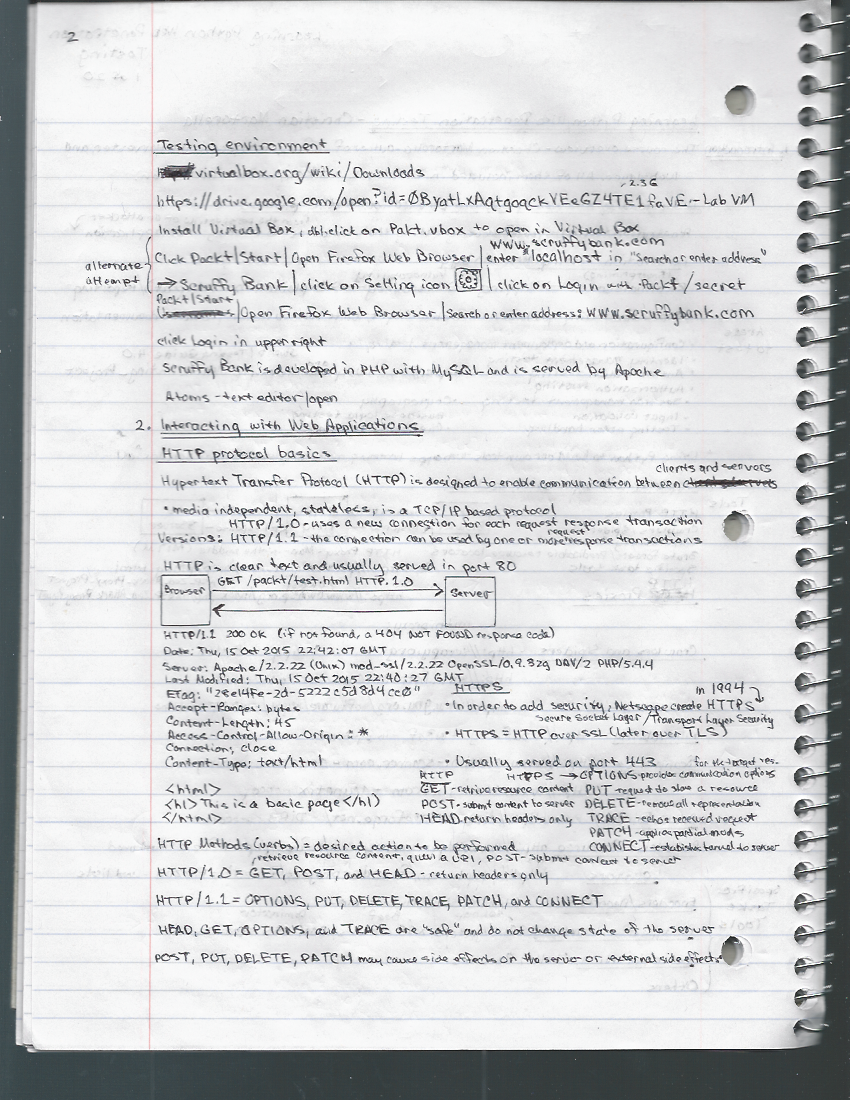 2
Testing environment
virtualbox.org/wiki/Downloads
, 2.3G
https://drive.google.com/open?id=0ByatLxAqtgoqckVEeGZ4TE1faVE - Lab VM
Install Virtual Box, dbl.click on Pakt.vbox to open in Virtual Box
www.scruffybank.com
Click Packt|Start|Open Firefox Web Browser|enter localhost in "Search or enter address"
alternate attempt
→ Scruffy Bank | click on Setting icon | click on Login with Packt/secret
Packt|Start
|Open Firefox Web Browser|Search or enter address: www.scruffybank.com
click Login in upper right
Scruffy Bank is developed in PHP with MySQL and is served by Apache
Atoms - text editor/open
2. Interacting with Web Applications
HTTP protocol basics
clients and servers
Hypertext Transfer Protocol (HTTP) is designed to enable communication between
• media independent, stateless, is a TCP/IP based protocol
HTTP/1.0 - uses a new connection for each request response transaction
request
Versions: HTTP/1.1 - the connection can be used by one or more response transactions
HTTP is clear text and usually served in port 80
Browser GET /packt/test.html HTTP.1.0 Server
HTTP/1.1 200 OK (if not found, a 404 NOT FOUND response code)
Date: Thu, 15 Oct 2015 22:42:07 GMT
Server: Apache/2.2.22 (Unix) mod_ssl/2.2.22 OpenSSL/0.9.8zg DAV/2 PHP/5.4.4
Last Modified: Thu, 15 Oct 2015 22:40:27 GMT
ETag: "28e14fe-2d-5222c5d8d4cc0" HTTPS in 1994
Accept-Ranges: bytes • In order to add security, Netscape create HTTPS
Content-Length: 45 Secure Socket Layer / Transport Layer Security
Access-Control-Allow-Origin: * • HTTPS = HTTP over SSL (later over TLS)
Connection: close
Content-Type: text/html • Usually served on port 443 for the target res.
HTTP HTTPS → OPTIONS - provides communication options
<html> GET - retrive resource content PUT - request to store a resource
<h1> This is a basic page </h1) POST - submit content to server DELETE - remove all representation
</html> HEAD - return headers only TRACE - echos received request
PATCH - applies partial mods
HTTP Methods (verbs) = desired action to be performed CONNECT - establishes tunnel to server
, retrieve resource content, given a URI, POST - submit content to server
HTTP/1.0 = GET, POST, and HEAD - return headers only
HTTP/1.1 = OPTIONS, PUT, DELETE, TRACE, PATCH, and CONNECT
HEAD, GET, OPTIONS, and TRACE are "safe" and do not change state of the server
POST, PUT, DELETE, PATCH may cause side effects on the server or external side effects